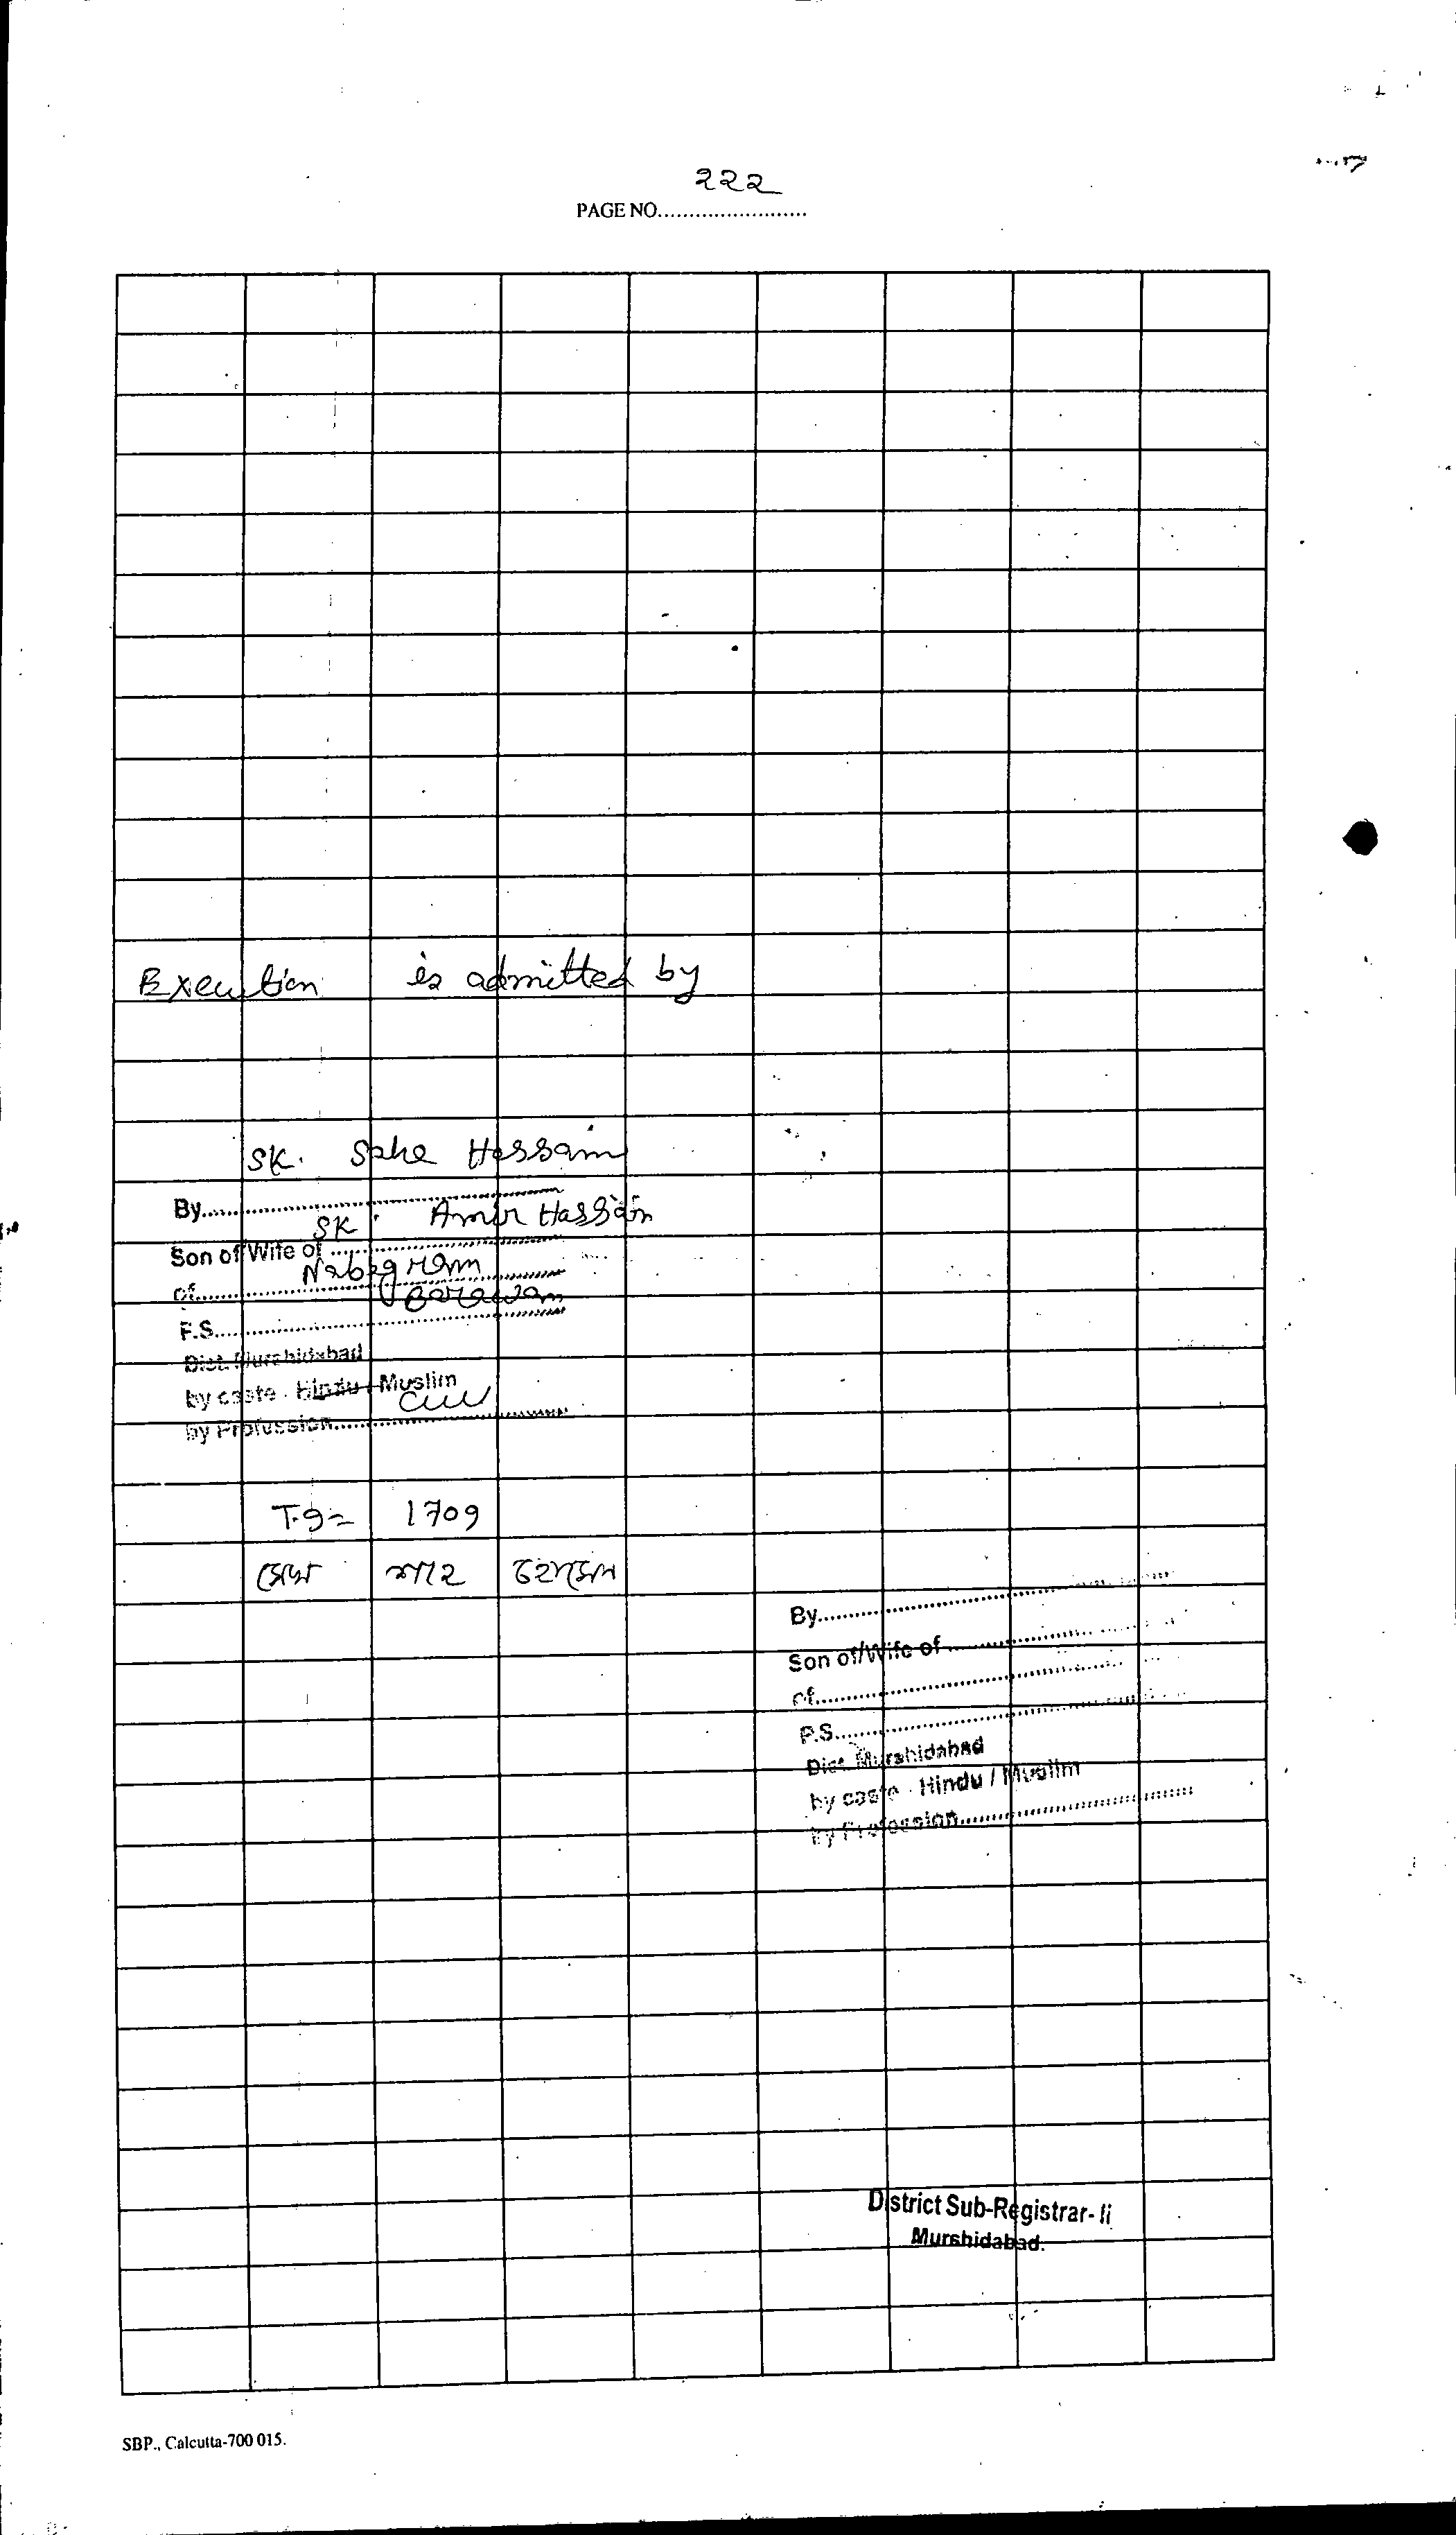 ২২২
PAGE NO........................
Execution is admitted by
SK. Sahe Hossain
By........................
SK. Amir Hassain
Son of/Wife of ........................
Nabagram
of........................
Barawan
P.S........................
Dist. Murshidabad
by caste - Hindu / Muslim
by Profession........................
T.g = 1709
সেখ সাহে হোসেন
By........................
Son of/Wife of ........................
of........................
P.S........................
Dist. Murshidabad
by caste - Hindu / Muslim
by Profession........................
District Sub-Registrar- Ii
Murshidabad.
SBP., Calcutta-700 015.